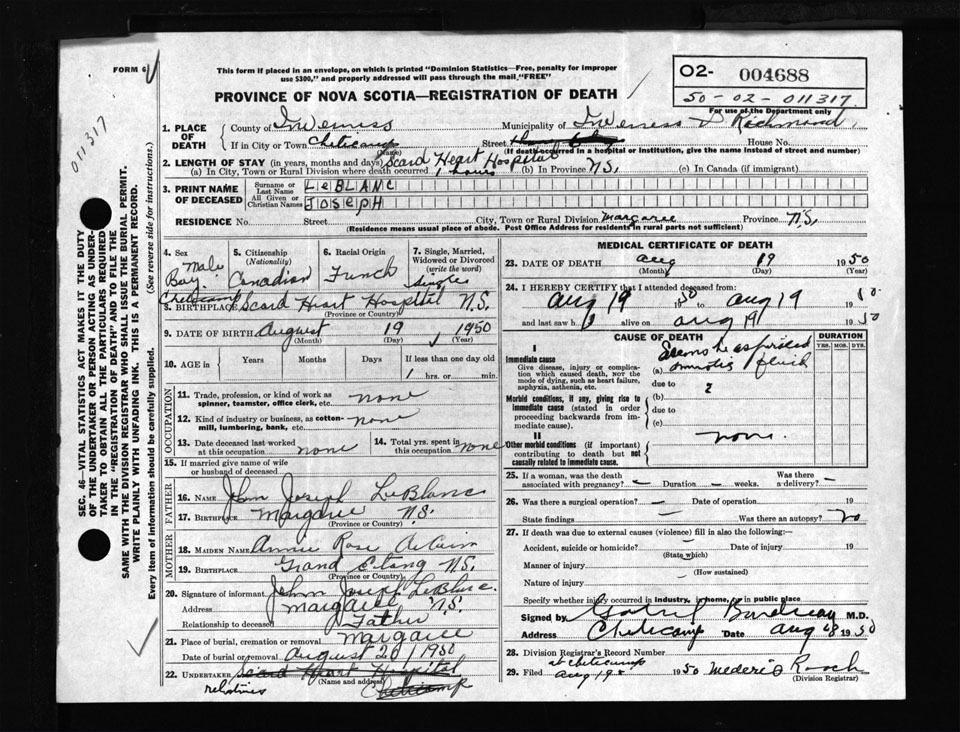 FORM 6
This form if placed in an envelope, on which is printed "Dominion Statistics—Free, penalty for improper
use $300," and properly addressed will pass through the mail "FREE"
O2- 004688
50-02-011317
For use of the Department only
PROVINCE OF NOVA SCOTIA—REGISTRATION OF DEATH
011317
1. PLACE OF DEATH
County of Inverness Municipality of Inverness & Richmond
If in City or Town Cheticamp Street House No.
(Name) (If death occurred in a hospital or institution, give the name instead of street and number)
Scard Heart Hospital
2. LENGTH OF STAY (in years, months and days)
(a) In City, Town or Rural Division where death occurred 1 hours (b) In Province N.S. (c) In Canada (if immigrant)
3. PRINT NAME OF DECEASED
Surname or Last Name LeBLANC
All Given or Christian Names JOSEPH
RESIDENCE No. Street City, Town or Rural Division Margaree Province N.S.
(Residence means usual place of abode. Post Office Address for residents in rural parts not sufficient)
4. Sex Male Boy
5. Citizenship (Nationality) Canadian
6. Racial Origin French
7. Single, Married, Widowed or Divorced (write the word) single
Cheticamp
8. BIRTHPLACE Scard Heart Hospital N.S.
(Province or Country)
9. DATE OF BIRTH August 19 1950
(Month) (Day) (Year)
10. AGE in Years Months Days If less than one day old
1 hrs. or min.
OCCUPATION
11. Trade, profession, or kind of work as
spinner, teamster, office clerk, etc. none
12. Kind of industry or business, as cotton-
mill, lumbering, bank, etc. none
13. Date deceased last worked at this occupation none
14. Total yrs. spent in this occupation none
15. If married give name of wife
or husband of deceased
FATHER
16. NAME John Joseph LeBlanc
17. BIRTHPLACE Margaree N.S.
(Province or Country)
MOTHER
18. MAIDEN NAME Annie Rose
19. BIRTHPLACE Grand Etang N.S.
(Province or Country)
20. Signature of informant John Joseph LeBlanc
Address Margaree N.S.
Relationship to deceased Father
21. Place of burial, cremation or removal Margaree
Date of burial or removal August 20/1950
22. UNDERTAKER Scard Heart Hospital
(Name and address)
relatives Cheticamp
MEDICAL CERTIFICATE OF DEATH
23. DATE OF DEATH Aug 19 1950
(Month) (Day) (Year)
24. I HEREBY CERTIFY that I attended deceased from:
Aug 19 1950 to Aug 19 1950
and last saw h alive on Aug 19 1950
CAUSE OF DEATH
DURATION
YRS. MOS. DYS.
I
Immediate cause
Give disease, injury or complica-
tion which caused death, NOT the
mode of dying, such as heart failure,
asphyxia, asthenia, etc.
(a) Seems he aspirated
fluid
due to
Morbid conditions, if any, giving rise to
immediate cause (stated in order
proceeding backwards from im-
mediate cause).
(b)
due to
(c)
II
Other morbid conditions (if important)
contributing to death but not
causally related to immediate cause.
none.
25. If a woman, was the death
associated with pregnancy? — Duration — weeks. Was there a delivery? —
26. Was there a surgical operation? — Date of operation 19
State findings — Was there an autopsy? no
27. If death was due to external causes (violence) fill in also the following:
Accident, suicide or homicide? Date of injury 19
(State which)
Manner of injury
(How sustained)
Nature of injury
Specify whether injury occurred in industry, in home, or in public place
Signed by Gabriel Boudreau M.D.
Address Cheticamp Date Aug 1950
28. Division Registrar's Record Number
at Cheticamp
29. Filed Aug 19 1950 Mederic Roach
(Division Registrar)
SEC. 46—VITAL STATISTICS ACT MAKES IT THE DUTY
OF THE UNDERTAKER OR PERSON ACTING AS UNDER-
TAKER TO OBTAIN ALL THE PARTICULARS REQUIRED
IN THE "REGISTRATION OF DEATH" AND TO FILE THE
SAME WITH THE DIVISION REGISTRAR WHO SHALL ISSUE THE BURIAL PERMIT.
WRITE PLAINLY WITH UNFADING INK. THIS IS A PERMANENT RECORD.
Every item of information should be carefully supplied. (See reverse side for instructions.)